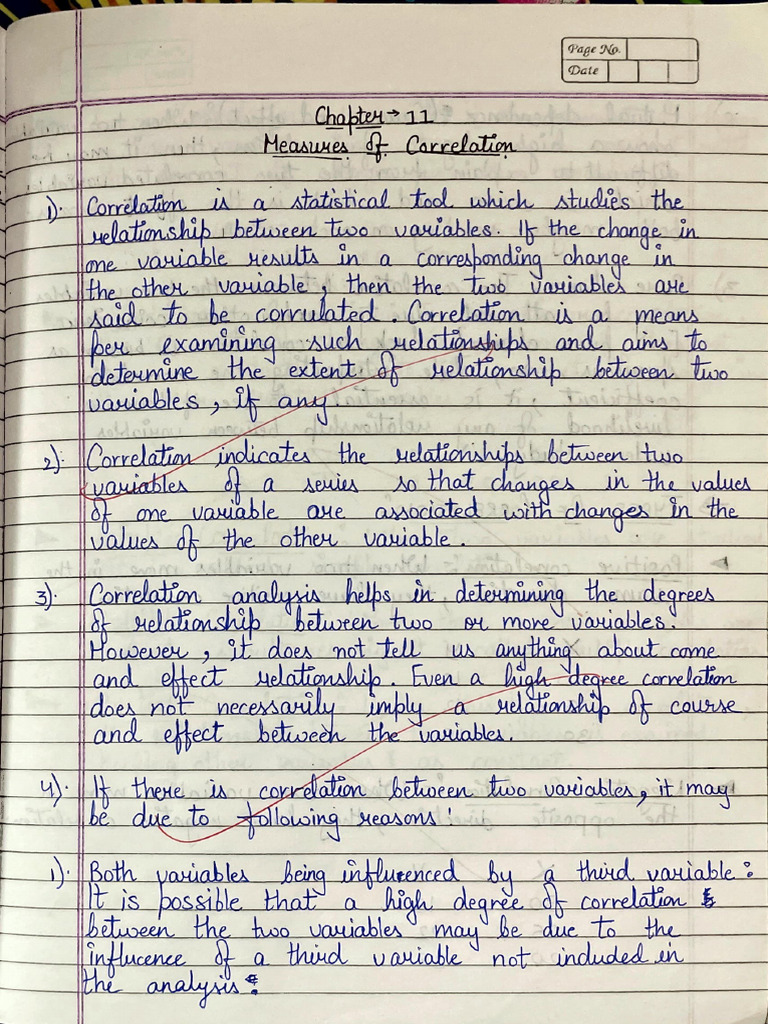 Page No.
Date
Chapter → 11
Measures of Correlation
1). Correlation is a statistical tool which studies the
relationship between two variables. If the change in
one variable results in a corresponding change in
the other variable, then the two variables are
said to be corrulated. Correlation is a means
per examining such relationships and aims to
determine the extent of relationship between two
variables, if any.
2). Correlation indicates the relationships between two
variables of a series so that changes in the values
of one variable are associated with changes in the
values of the other variable.
3). Correlation analysis helps in determining the degrees
of relationship between two or more variables.
However, it does not tell us anything about come
and effect relationship. Even a high degree correlation
does not necessarily imply a relationship of course
and effect between the variables.
4). If there is correlation between two variables, it may
be due to following reasons:
1). Both variables being influenced by a third variable:
It is possible that a high degree of correlation
between the two variables may be due to the
influcence of a third variable not included in
the analysis: